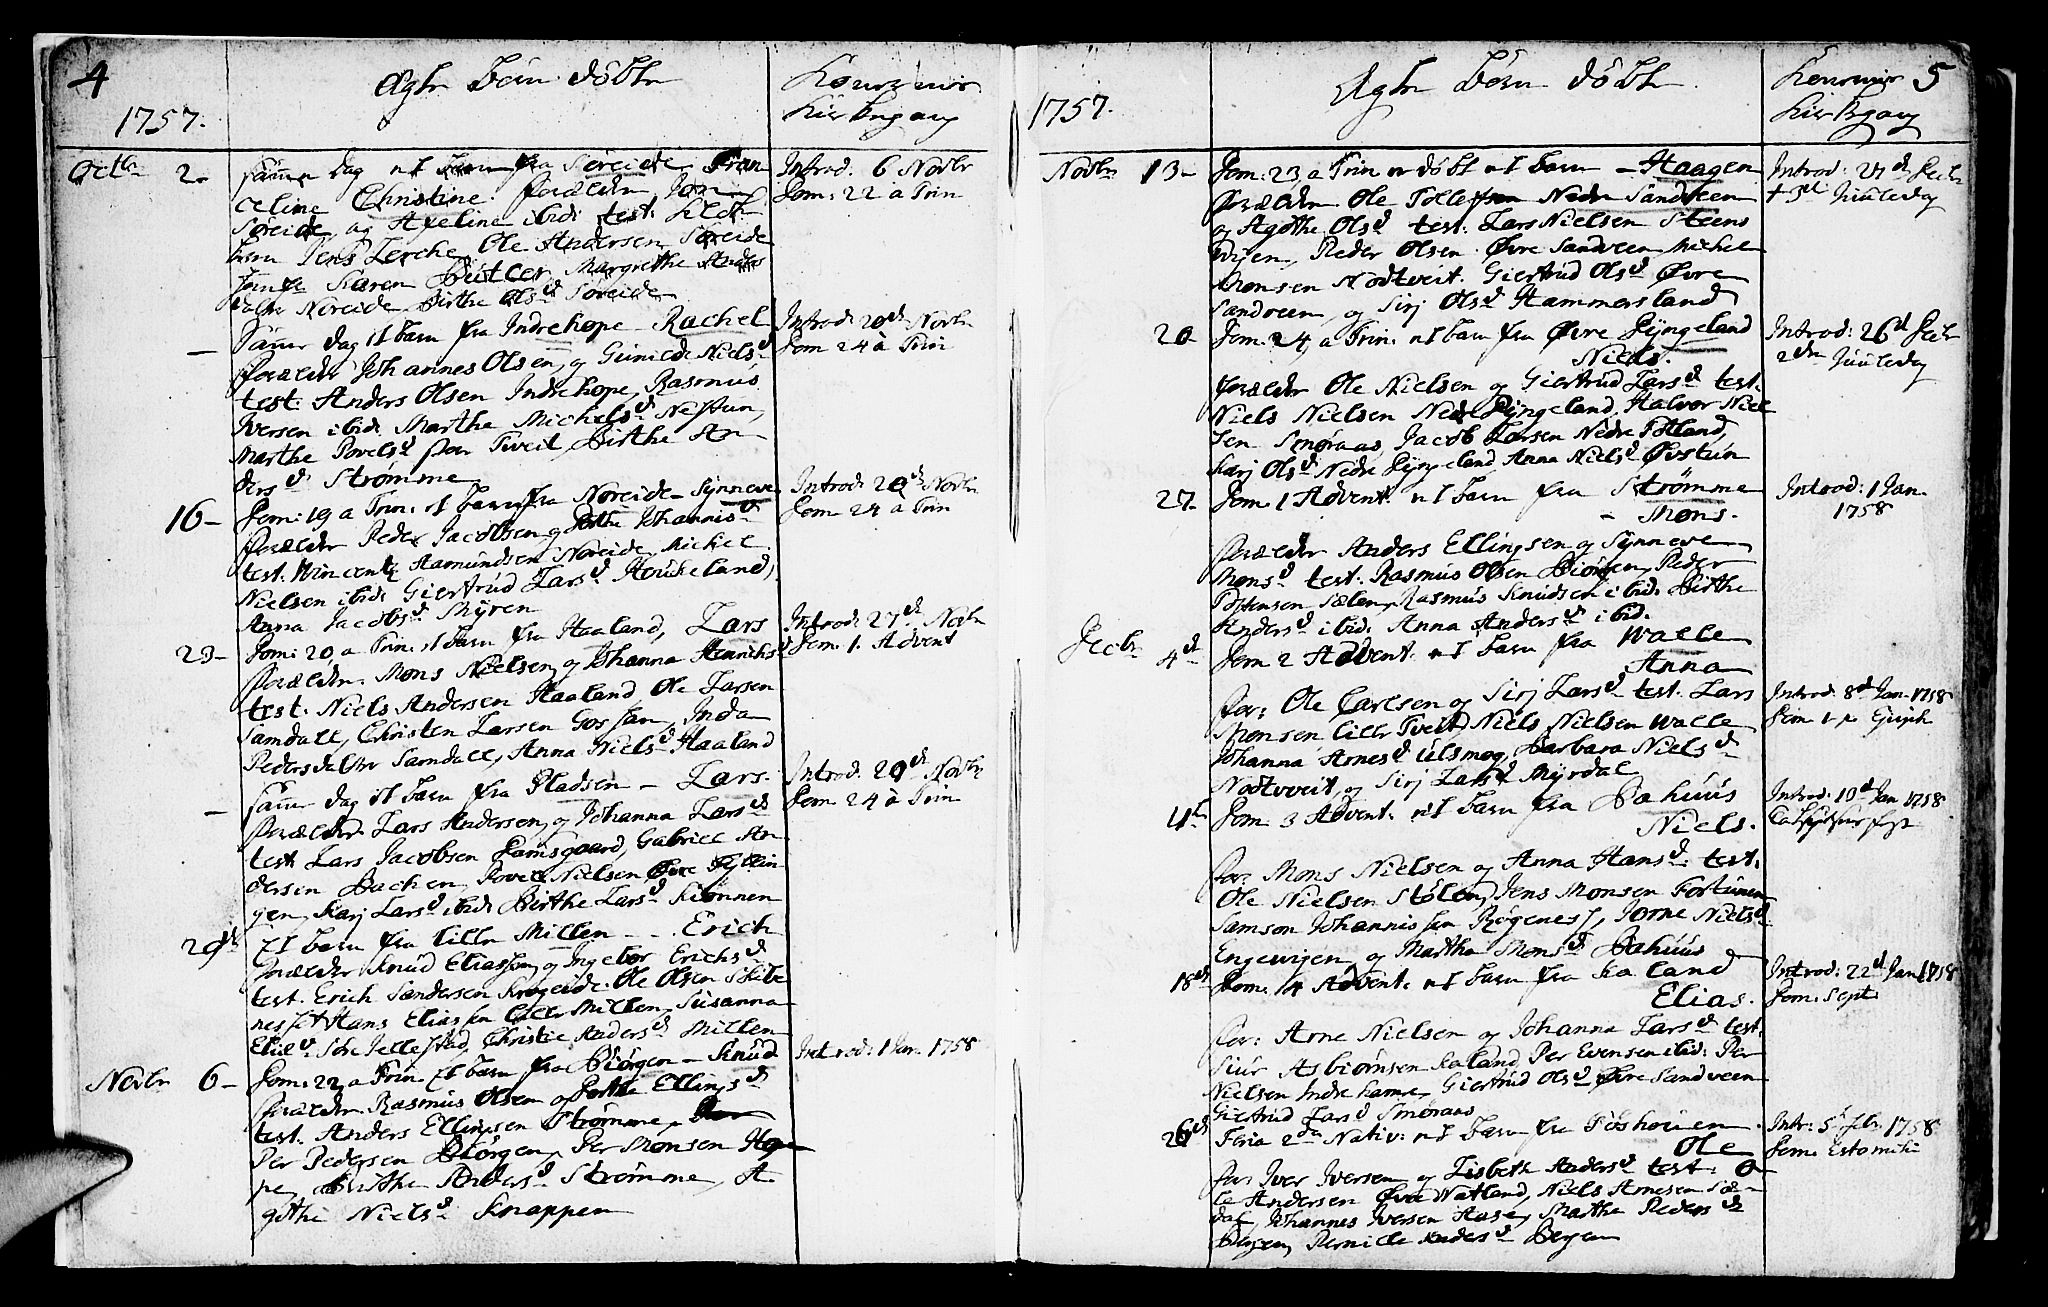 4
1757.
Ægte børn døbte
Konernis
Kirkegang
Octbr 2. Samme dag et barn fra Søreide Fran
celine Christine forældre Jon
Søreide og Axeline ibid: test:
Jens Lerche, Ole Andersen Søreide
Karen Bützer, Margrethe Anders
datter Noreide, Birthe Olsd Søreide
Introd: 6 Novbr
Dom: 22 a Trin
— Samme dag et barn fra Indrehope — Rachel
forældre Johannes Olsen, og Gunilde Nielsd
test: Anders Olsen Indrehope, Rasmus
Iversen ibid: Marthe Michelsd Nestun,
Marthe Povelsd Tveit, Birthe An
dersd Strømme
Introd: 20de Novbr
Dom 24 a Trin
16 — Dom: 19 a Trin: et barn fra Noreide — Synneve
forældre Peder Jacobsen og Johannisd
test: Vincentz Aamundsen Noreide, Michel
Nielsen ibid: Giertrud Larsd Houkeland,
Anna Jacobsd Myren
Introd: 20de Novbr
Dom 24 a Trin
23 — Dom: 20, a Trin: et barn fra Haaland, Lars
forældre. Mons Nielsen, og Johanna Henrichsd
test: Niels Andersen Haaland Ole Larsen
Samdall, Christen Larsen Inda
Pedersdatter Samdall, Anna Nielsd Haaland
Introd: 27de Novbr
Dom. 1. Advent
— samme dag et barn fra Pladsen — Lars.
forældre Lars Andersen, og Johanna Larsd
test Lars Jacobsen Gabriel An
dersen Bachen, Povel Nielsen Øvre Fyllin
gen, Karj Larsd ibid: Birthe Larsd Skiønnen
Introd: 20de Novbr
Dom. 24 à Trin
29de Et barn fra lille Millen — Erich
forældre Knud Eliassen, og Ingebor Erichsd
test. Erich Sandersen Krogeide. Ole Olsen Skibe
nes Hans Eliassen lille Millen, Susanna
Eliaed Søre Jellestad, Christie Andersd Millen
Introd: 1 Jan. 1758
Novbr 6 — Dom: 22, a Trin et barn fra Biørgen — Knud
forældre Rasmus Olsen og Ellingsd
test. Anders Ellingsen Strømme,
Per Pedersen Biørgen, Per Monsen Hop
pe, Birthe Andersd Strømme, A
gothe Nielsd Knappen
1757.
Ægte børn døbte
Konernis 5
Kirkegang
Novbr 13 — Dom: 23, a Trin er døbt et barn — Haagen
forældre Ole Tollefsen Nedre Sandveen
og Agothe Olsd test. Lars Nielsen Steens
Peder Olsen Øvre Sandveen, Michel
Monsen Nodtveit. Giertrud Olsd Øvre
Sandveen, og Sirj Olsd Hammersland
Introd: 27d Decbr
3die Juuledag
20 Dom. 24, a Trin: et barn fra Øvre Dyngeland
Niels.
forældre Ole Nielsen og Giertrud Larsd test.
Niels Nielsen Nedre Dyngeland, Halvor Niel
sen Smøraas, Jacob Larsen Nedre Totland,
Karj Olsd Nedre Dyngeland Anna Nielsd Øvstun
Introd: 26d Decbr
2den Juuledag
27. Dom. 1 Advent. et barn fra Strømme
— Mons.
forældre Anders Ellingsen og Synneve
Monsd test: Rasmus Olsen Biørgen, Peder
Sælen, Rasmus Knudsen ibid: Birthe
Andersd ibid. Anna Andersd ibid.
Introd: 1 Jan.
1758
Decbr 4de Dom 2 Advent. et barn fra Walle
Anna
for: Ole Carlsen og Sirj Larsd test. Lars
Monsen lille Tveit, Niels Nielsen Walle
Johanna Arnesd Ulsmog, Barbara Nielsd
Nodtvveit, og Sirj Larsd Myrdal
Introd: 8d Jan 1758
Dom 1 p Epiph
11te Dom 3 Advent. et barn fra Bahuus
Niels.
for: Mons Nielsen og Anna Hansd test.
Ole Nielsen Stølen, Jens Monsen Fortunen
Samson Johannissen Røgenes, Jorne Nielsd
Engevigen, og Martha Monsd Bahuus
Introd: 10d Jan 1758
18de Dom. 4 Advent. et barn fra Kaland
Elias.
for: Arne Nielsen og Johanna Larsd test.
Siur Asbiørnsen Kaland, Per Evensen ibid: Per
Nielsen Indre hame, Giertrud Olsd Øvre Sandveen
Giertrud Larsd Smøraas
Introd: 22d Jan 1758
Dom. Septs
26de Feria 2da Nativ: et barn fra
Ole
for: Iver Iversen, og Lisbeth Andersd test: O
le Andersen Øvre Natland, Niels Arnesen Sæ
dal, Johannes Iversen Aase, Martha Pedersd
Bergen, Pernille Andersd Bergen
Intr: 5 Febr. 1758
Dom. Estomihi